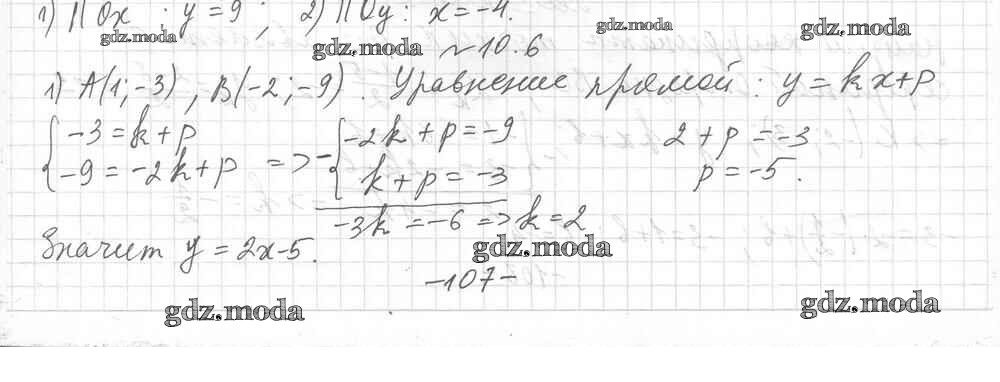 1) ΠOx : y = 9 ; 2) ΠOy : x = -4.
gdz.moda gdz.moda gdz.moda gdz.moda
~ 10.6
1) A(1; -3), B(-2; -9). Уравнение прямой : y = kx+p
{ -3 = k + p
-9 = -2k + p => - { -2k + p = -9
k + p = -3
-3k = -6 => k = 2
2 + p = -3
p = -5.
Значит y = 2x-5.
gdz.moda
-107-
gdz.moda gdz.moda